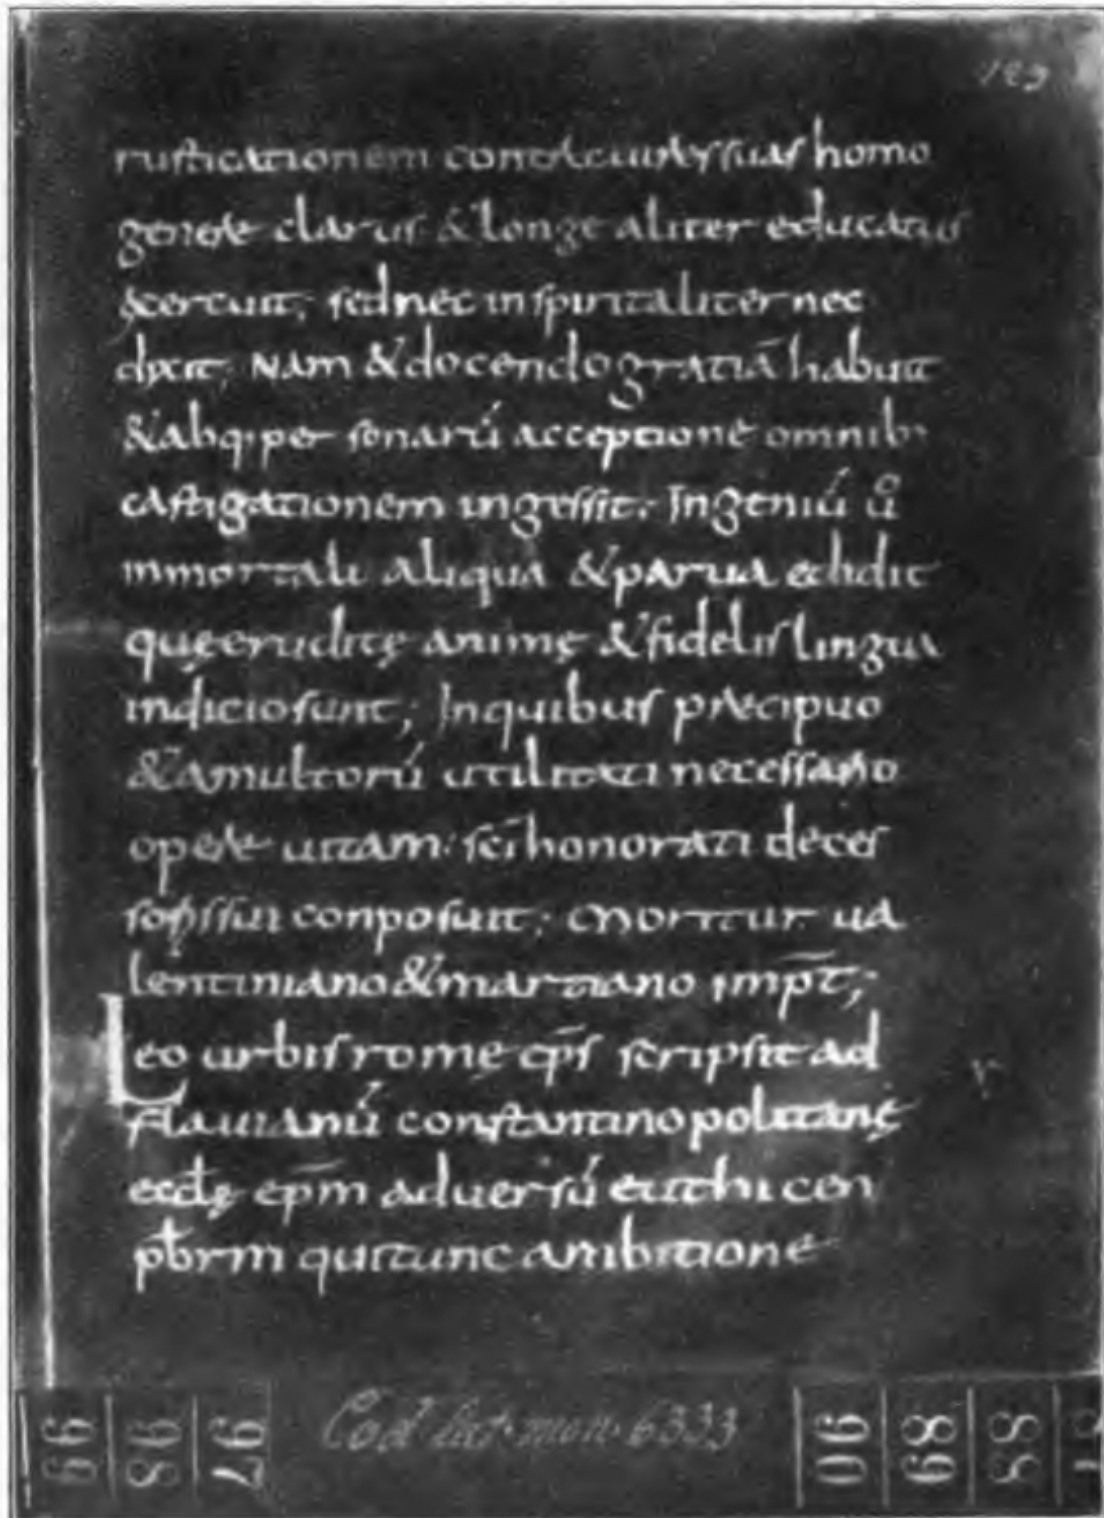 129
rusticationem contra uires suas homo
genere clarus & longe aliter educatus
exercuit; sed nec in spiritaliter nec
dixit; Nam & docendo gratiā habuit
& absq; personarū acceptione omnib;
castigationem ingessit; Ingeniū ů
inmortali aliqua & parua edidit
quę erudite̜ anime̜ & fidelis lingua
indicio sunt; In quibus precipuo
& amultorū utilitati necessario
opere uitam sc̄i honorati deces
soris sui conposuit; Moritur ua
lentiniano & martiano imp̄t;
Leo urbis romę ep̄s scripsit ad
flauianū constantinopolitanę
eccl̄ę ep̄m aduersū eutchicen
pb̄rm qui tunc ambitione
Cod. lat. mon. 6333
99
98
97
90
89
88